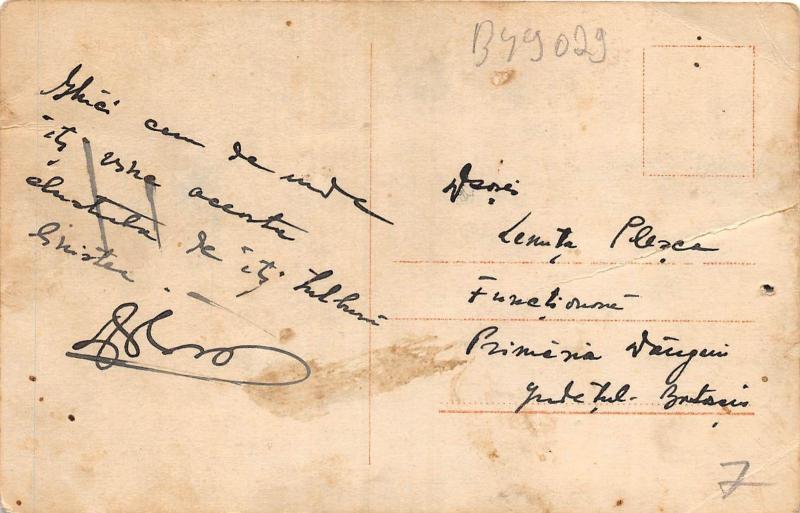 B49029
Ghici cam de unde
îți vine acesta
de îți tulbur
liniștea.
Dșoarei
Lenuța Pleșca
Funcționară
Primăria Dângeni
Județul - Botoșani
7